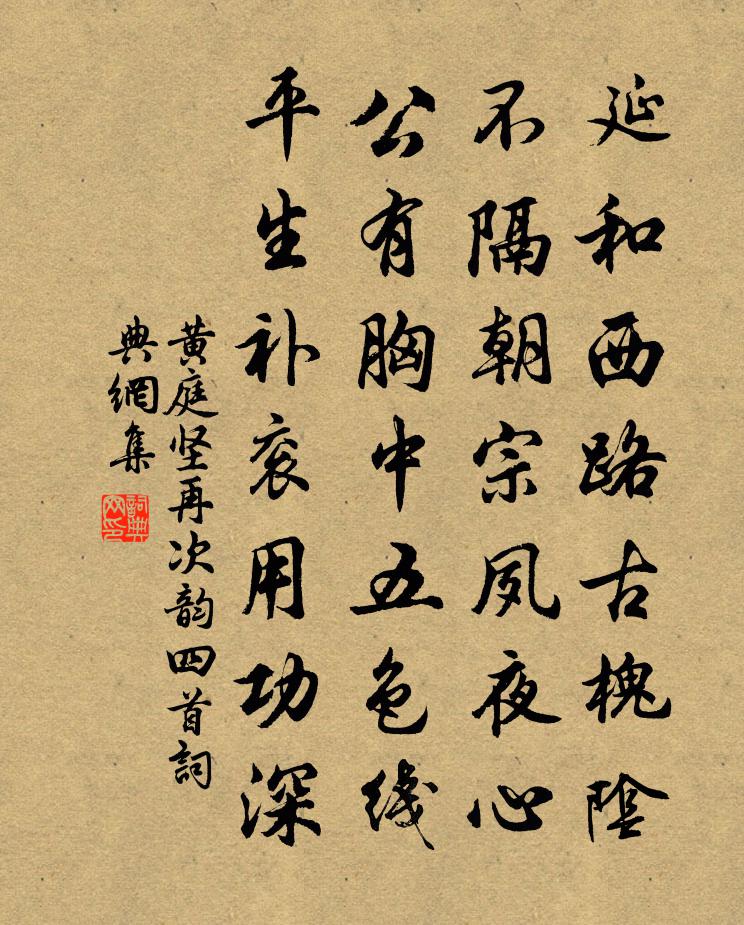 延和西路古槐陰
不隔朝宗夙夜心
公有胸中五色綫
平生补衮用功深
黄庭坚再次韵四首詞
典網集
詞典網印